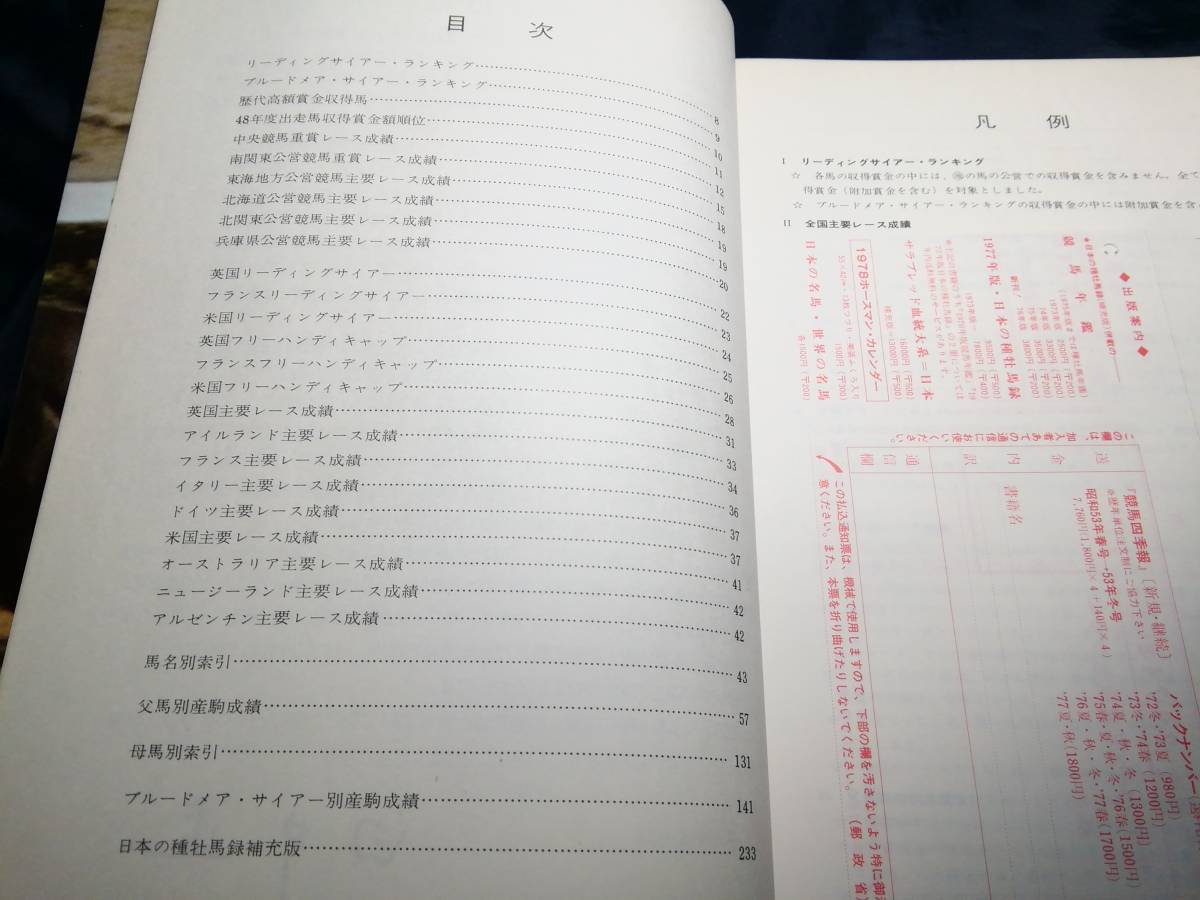 目 次
リーディングサイアー・ランキング……8
ブルードメア・サイアー・ランキング……9
歴代高額賞金収得馬……10
48年度出走馬収得賞金額順位……11
中央競馬重賞レース成績……12
南関東公営競馬重賞レース成績……15
東海地方公営競馬主要レース成績……18
北海道公営競馬主要レース成績……19
北関東公営競馬主要レース成績……19
兵庫県公営競馬主要レース成績……20
英国リーディングサイアー……22
フランスリーディングサイアー……23
米国リーディングサイアー……24
英国フリーハンディキャップ……25
フランスフリーハンディキャップ……26
米国フリーハンディキャップ……28
英国主要レース成績……31
アイルランド主要レース成績……33
フランス主要レース成績……34
イタリー主要レース成績……36
ドイツ主要レース成績……37
米国主要レース成績……37
オーストラリア主要レース成績……41
ニュージーランド主要レース成績……42
アルゼンチン主要レース成績……42
馬名別索引……43
父馬別産駒成績……57
母馬別索引……131
ブルードメア・サイアー別産駒成績……141
日本の種牡馬録補充版……233
凡 例
I リーディングサイアー・ランキング
☆ 各馬の収得賞金の中には、の馬の公営での収得賞金を含みません。全て
得賞金（附加賞金を含む）を対象としました。
☆ ブルードメア・サイアー・ランキングの収得賞金の中には附加賞金を含
II 全国主要レース成績
◆出版案内◆
競馬年鑑
1977年版・日本の種牡馬録
サラブレッド血統大系＝日本
1978ホースマン・カレンダー
日本の名馬・世界の名馬
各1600円（〒200）
この欄は、加入者あての通信にお使いください。
通信欄
送金内訳
書籍名
『競馬四季報』〔新規・継続〕
※暦年単位注文制にご協力下さい
昭和53年春号→53年冬号
7,760円(1,800円×4＋140円×4)
バックナンバー
'72冬・'73夏（980円）
'73冬・'74春（1200円）
'74夏・秋・冬（1300円）
'75春・夏・秋・冬・'76春(1500円)
'76夏・秋・冬・'77春(1700円)
'77夏・秋(1800円)
この払込通知票は、機械で使用しますので、下部の欄を汚さないよう特に御注
意ください。また、本票を折り曲げたりしないでください。（郵政省）